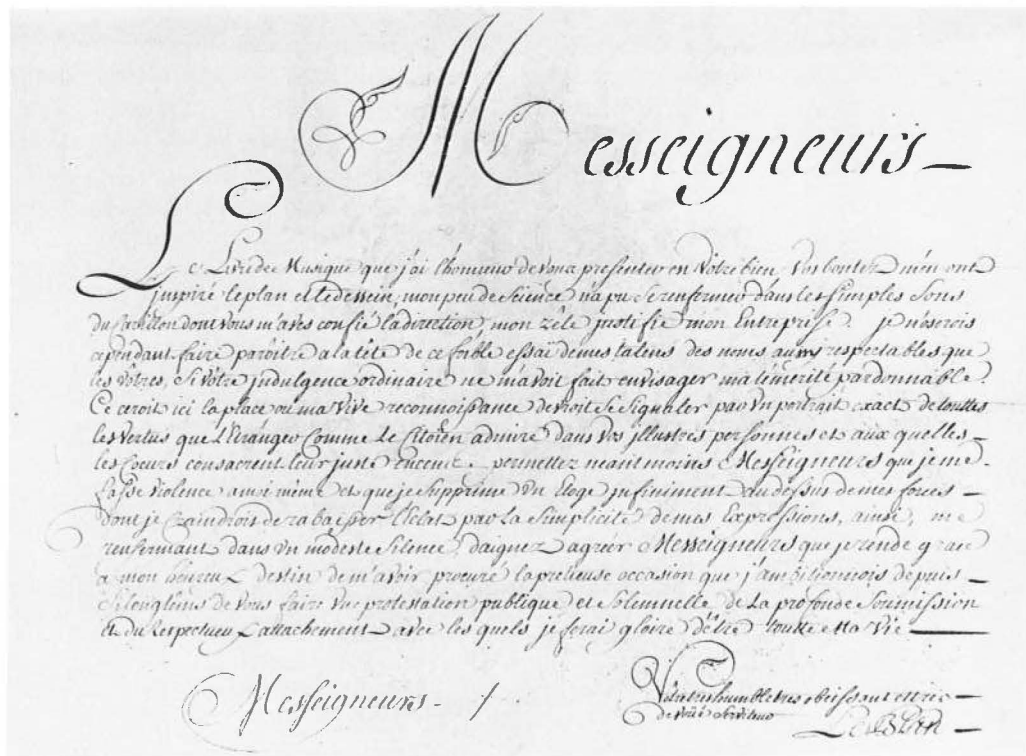 Messeigneurs
Le Livre de Musique que j'ai l'honneur de vous presenter en Vôtre bien. Vos bontez m'en ont
inspiré le plan et le dessein, mon peu de Science n'a pu se renfermer dans les simples Sons
du Carillon dont vous m'aves confié la direction, mon zêle justifie mon Entreprise. je n'oserois
cependant faire parôitre a la tête de ce foible essaï de mes talens des noms aussy respectables que
les vôtres, si vôtre indulgence ordinaire ne m'avoit fait envisager ma témérité pardonnable.
Ce ceroit ici la place ou ma vive reconnoissance devroit se signaler par un portrait exact de touttes
les vertus que l'Etranger Comme Le Citoïen admire dans vos illustres personnes et aux quelles
les Coeurs consacrent leur juste encens. permettez neantmoins Messeigneurs que je me
fasse violence a moi même et que je supprime un Eloge infiniment au dessus de mes forces
dont je Craindrois de rabaisser l'Eclat par la Simplicité de mes Expressions, ainsi, me
renfermant dans un modeste Silence, daignez agréer Messeigneurs que je rende grace
a mon heureux destin de m'avoir procuré la pretieuse occasion que j'ambitionnois depuis
si longtems de vous faire une protestation publique et Solemnelle de La profonde Soumission
et du Respectueux attachement avec les quels je ferai gloire d'être toutte ma Vie
Messeigneurs
Vôtre tres humble tres obeissant et tres
devoüé Serviteur